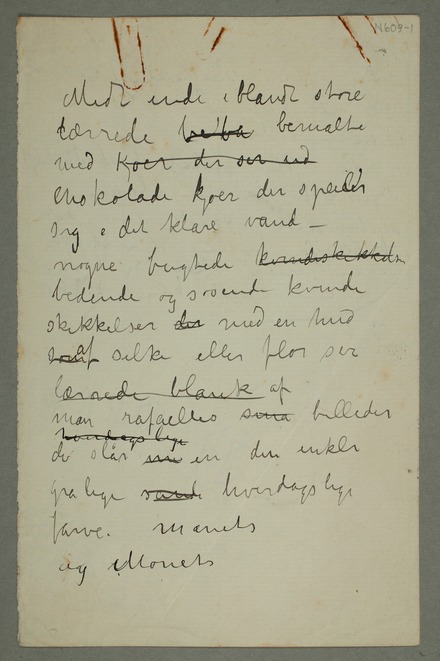 N609-1
Midt inde iblandt store
lærrede be bemalte
med Køer der ser ud
chokolade kjøer der speiler
sig i det klare vand –
nogne bugtede kvindeskikkelser
bedende og sovende kvinde
skikkelser der med en hud
som af silke eller flor ser
lærrede blank af
man rafaellis små billeder
hverdagslige
de slår en den enkle
gralige hverdagslige
farve. Manets
og Monets